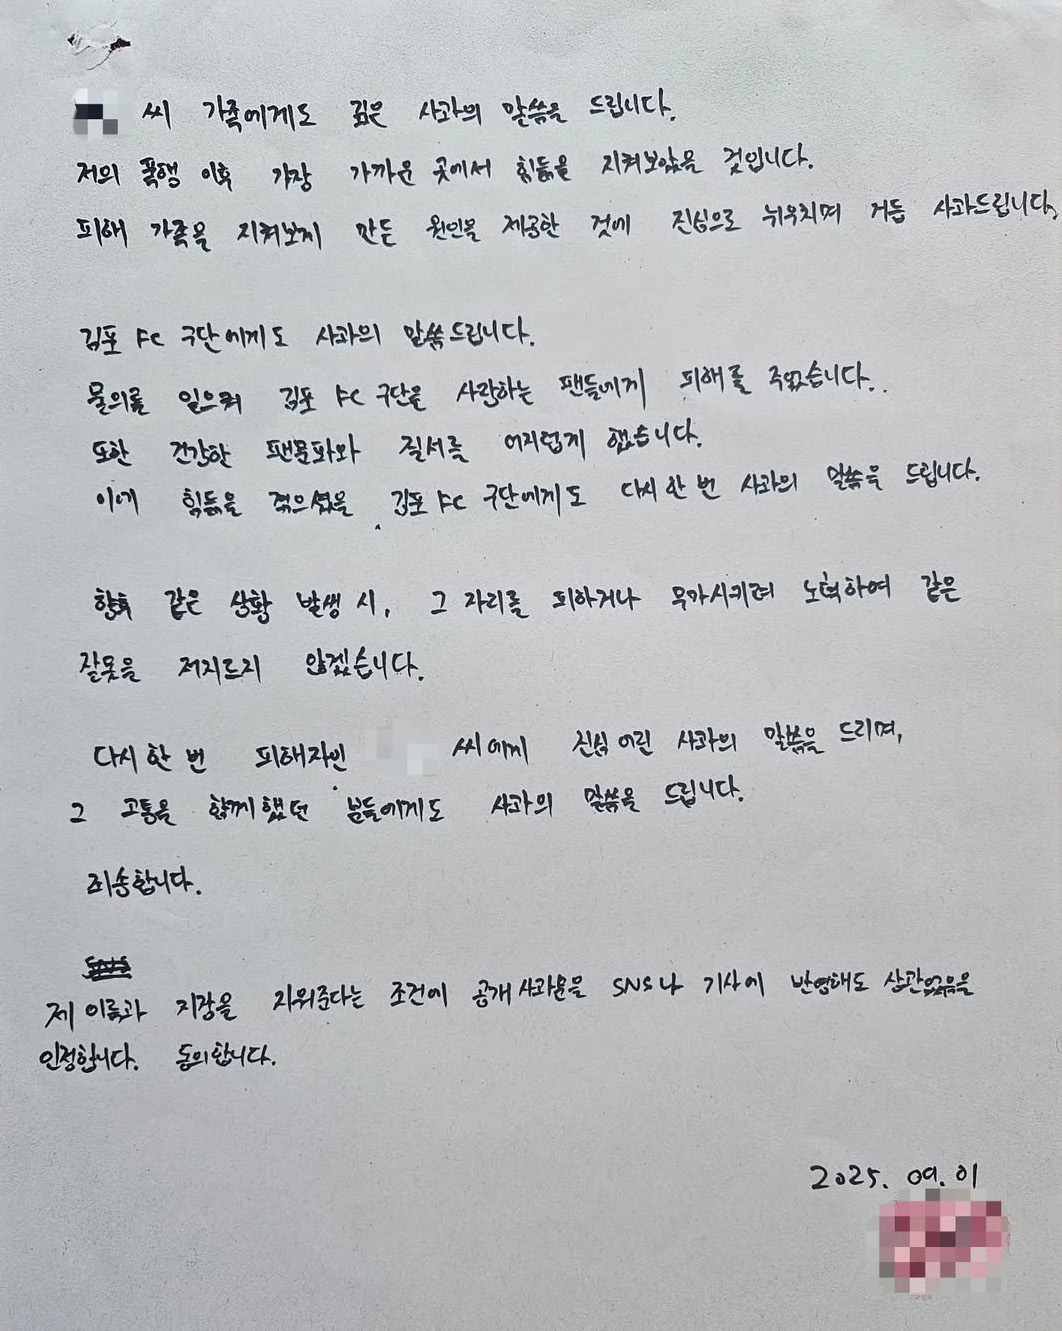 씨 가족에게도 깊은 사과의 말씀을 드립니다.
저의 폭행 이후 가장 가까운 곳에서 힘듦을 지켜보았을 것입니다.
피해 가족을 지켜보게 만든 원인을 제공한 것에 진심으로 뉘우치며 거듭 사과드립니다.
김포 FC 구단에게도 사과의 말씀드립니다.
물의를 일으켜 김포 FC 구단을 사랑하는 팬들에게 피해를 주었습니다.
또한 건강한 팬문화와 질서를 어지럽게 했습니다.
이에 힘듦을 겪으셨을 김포 FC 구단에게도 다시 한 번 사과의 말씀을 드립니다.
향후 같은 상황 발생 시, 그 자리를 피하거나 무마시키려 노력하여 같은
잘못을 저지르지 않겠습니다.
다시 한 번 피해자인 씨에게 진심 어린 사과의 말씀을 드리며,
그 고통을 함께했던 분들에게도 사과의 말씀을 드립니다.
죄송합니다.
제 이름과 지장을 지워준다는 조건에 공개 사과문을 SNS나 기사에 반영해도 상관없음을
인정합니다. 동의합니다.
2025. 09. 01